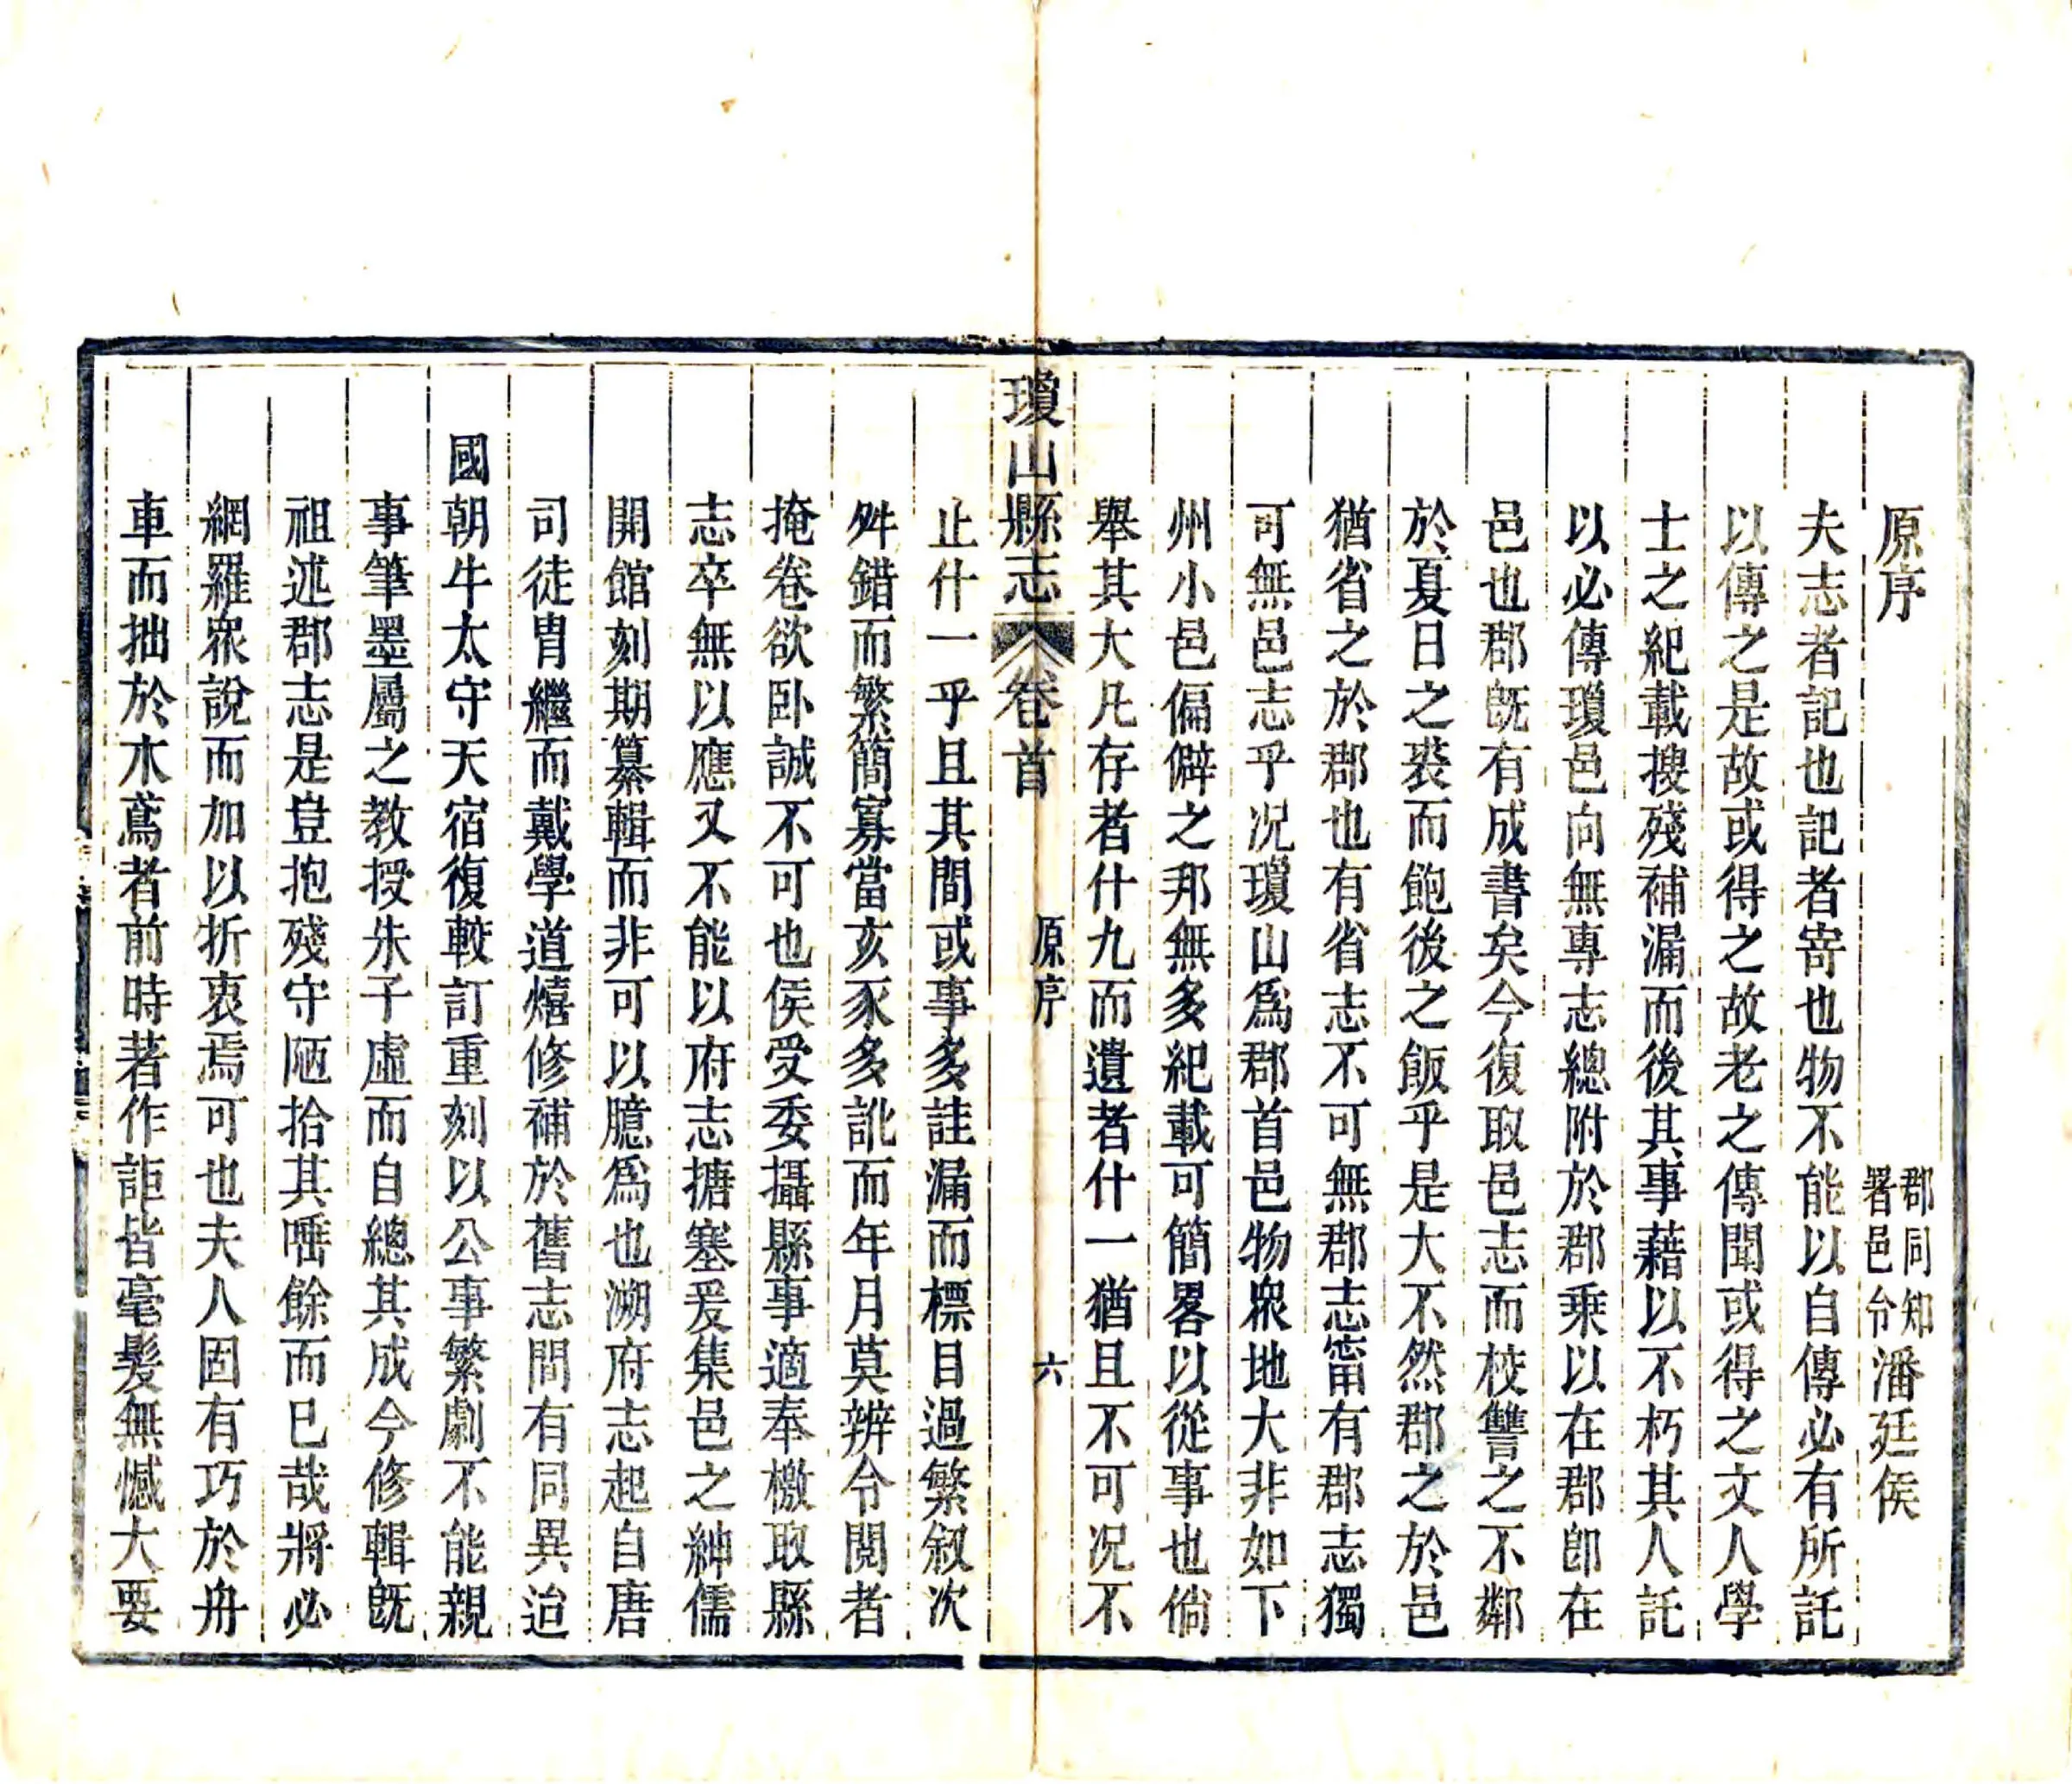 原序
郡同知
署邑令
潘廷侯
夫志者記也記者寄也物不能以自傳必有所託
以傳之是故或得之故老之傳聞或得之文人學
士之紀載搜殘補漏而後其事藉以不朽其人託
以必傳瓊邑向無專志總附於郡乘以在郡即在
邑也郡旣有成書矣今復取邑志而校讐之不鄰
於夏日之裘而飽後之飯乎是大不然郡之於邑
猶省之於郡也有省志不可無郡志甯有郡志獨
可無邑志乎况瓊山爲郡首邑物衆地大非如下
州小邑偏僻之邦無多紀載可簡畧以從事也倘
舉其大凡存者什九而遺者什一猶且不可况不
瓊山縣志 卷首 原序 六
止什一乎且其間或事多註漏而標目過繁叙次
舛錯而繁簡寡當亥豕多訛而年月莫辨令閱者
掩卷欲卧誠不可也侯受委攝縣事適奉檄取縣
志卒無以應又不能以府志搪塞爰集邑之紳儒
開館刻期纂輯而非可以臆爲也溯府志起自唐
司徒冑繼而戴學道熺修補於舊志間有同異迨
國朝牛太守天宿復較訂重刻以公事繁劇不能親
事筆墨屬之教授朱子虛而自總其成今修輯旣
祖述郡志是豈抱殘守陋拾其唾餘而已哉將必
網羅衆說而加以折衷焉可也夫人固有巧於舟
車而拙於木鳶者前時著作詎皆毫髮無憾大要